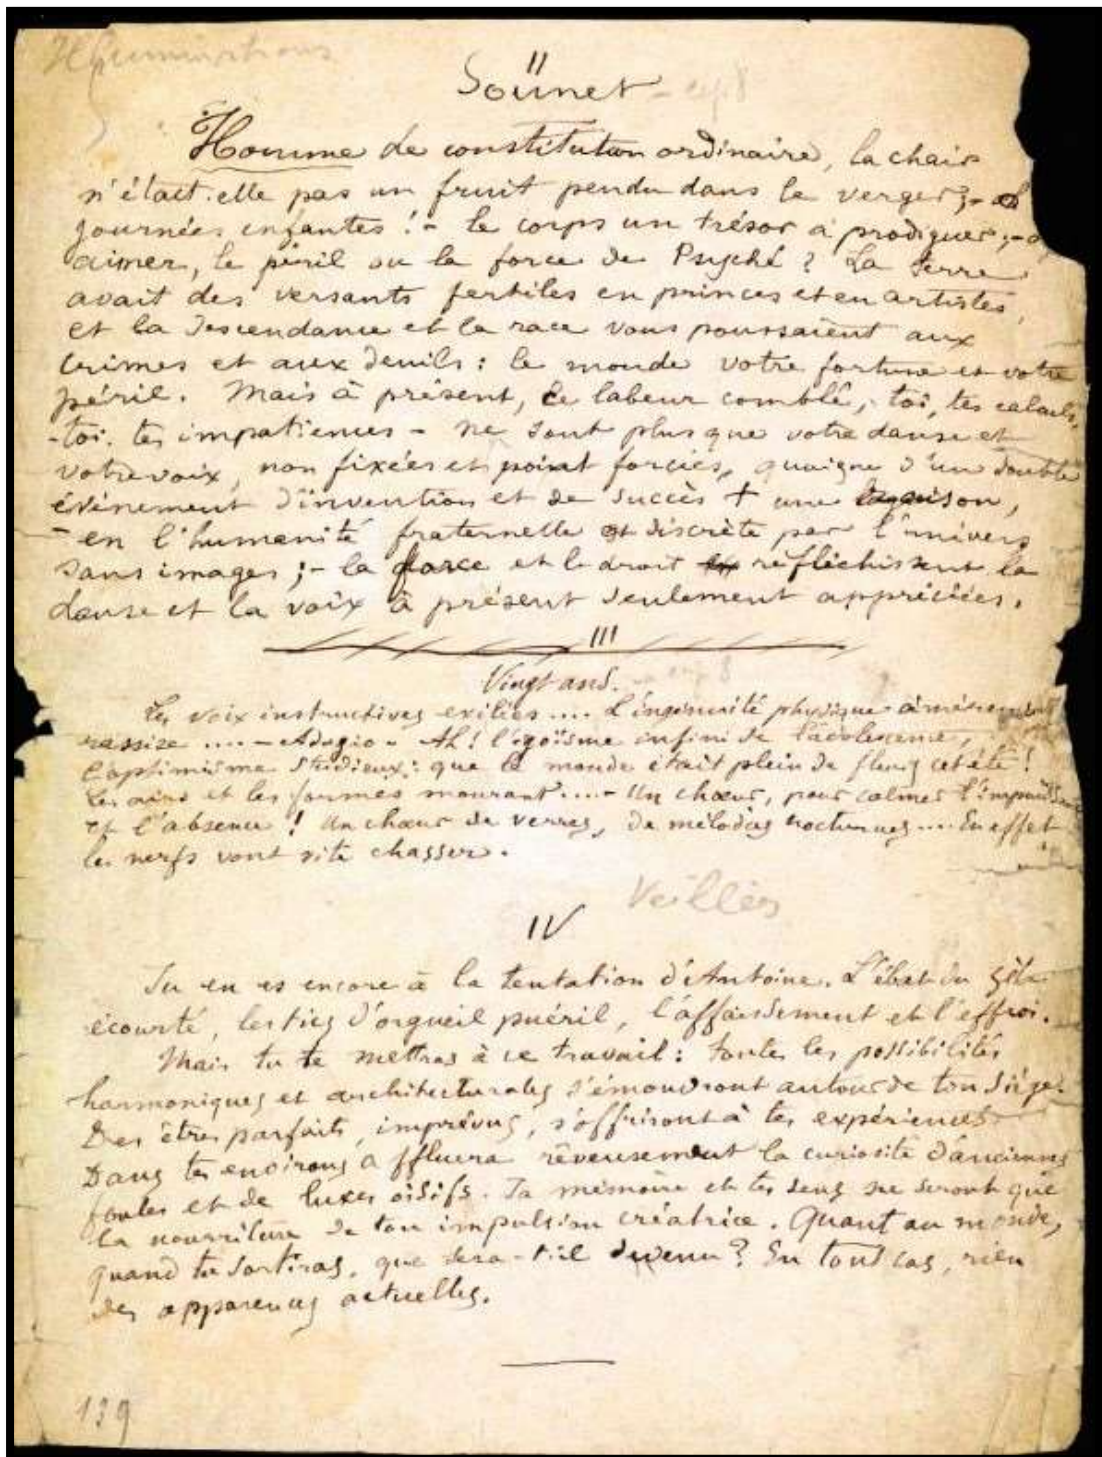 Illuminations
II
Sonnet
Homme de constitution ordinaire, la chair
n'était-elle pas un fruit pendu dans le verger ; - ô
journées enfantes ! - le corps un trésor à prodiguer ; - ô
aimer, le péril ou la force de Psyché ? La terre
avait des versants fertiles en princes et en artistes,
et la descendance et la race vous poussaient aux
crimes et aux deuils : le monde votre fortune et votre
péril. Mais à présent, ce labeur comblé, - toi, tes calculs,
- toi, tes impatiences - ne sont plus que votre danse et
votre voix, non fixées et point forcées, quoique d'un double
événement d'invention et de succès + une raison,
- en l'humanité fraternelle et discrète par l'univers
sans images ; - la force et le droit réfléchissent la
danse et la voix à présent seulement appréciées.
III
Vingt ans.
Les voix instructives exilées .... L'ingénuité physique amèrement
rassise .... - Adagio - Ah ! l'égoïsme infini de l'adolescence,
l'optimisme studieux : que le monde était plein de fleurs cet été !
Les airs et les formes mourant .... - Un chœur, pour calmer l'impuissance
et l'absence ! Un chœur de verres, de mélodies nocturnes .... En effet
les nerfs vont vite chasser.
Veillées
IV
Tu en es encore à la tentation d'Antoine. L'ébat du zèle
écourté, les tics d'orgueil puéril, l'affaissement et l'effroi.
Mais tu te mettras à ce travail : toutes les possibilités
harmoniques et architecturales s'émouvront autour de ton siège.
Des êtres parfaits, imprévus, s'offriront à tes expériences.
Dans tes environs affluera rêveusement la curiosité d'anciennes
foules et de luxes oisifs. Ta mémoire et tes sens ne seront que
la nourriture de ton impulsion créatrice. Quant au monde,
quand tu sortiras, que sera-t-il devenu ? En tout cas, rien
des apparences actuelles.
139